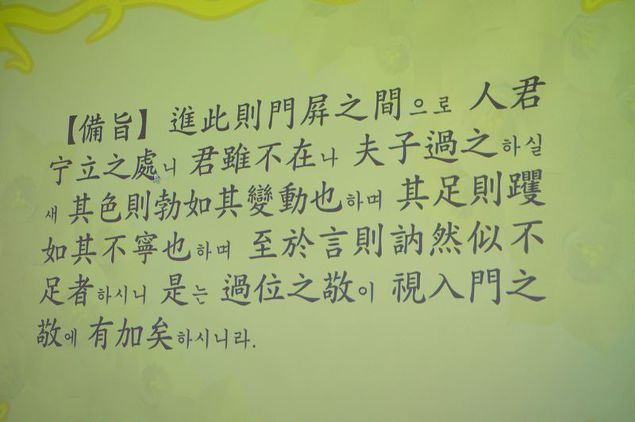 【備旨】 進此則門屛之間으로 人君
宁立之處니 君雖不在나 夫子過之하실
새 其色則勃如其變動也하며 其足則躩
如其不寧也하며 至於言則訥然似不
足者하시니 是는 過位之敬이 視入門之
敬에 有加矣하시니라.